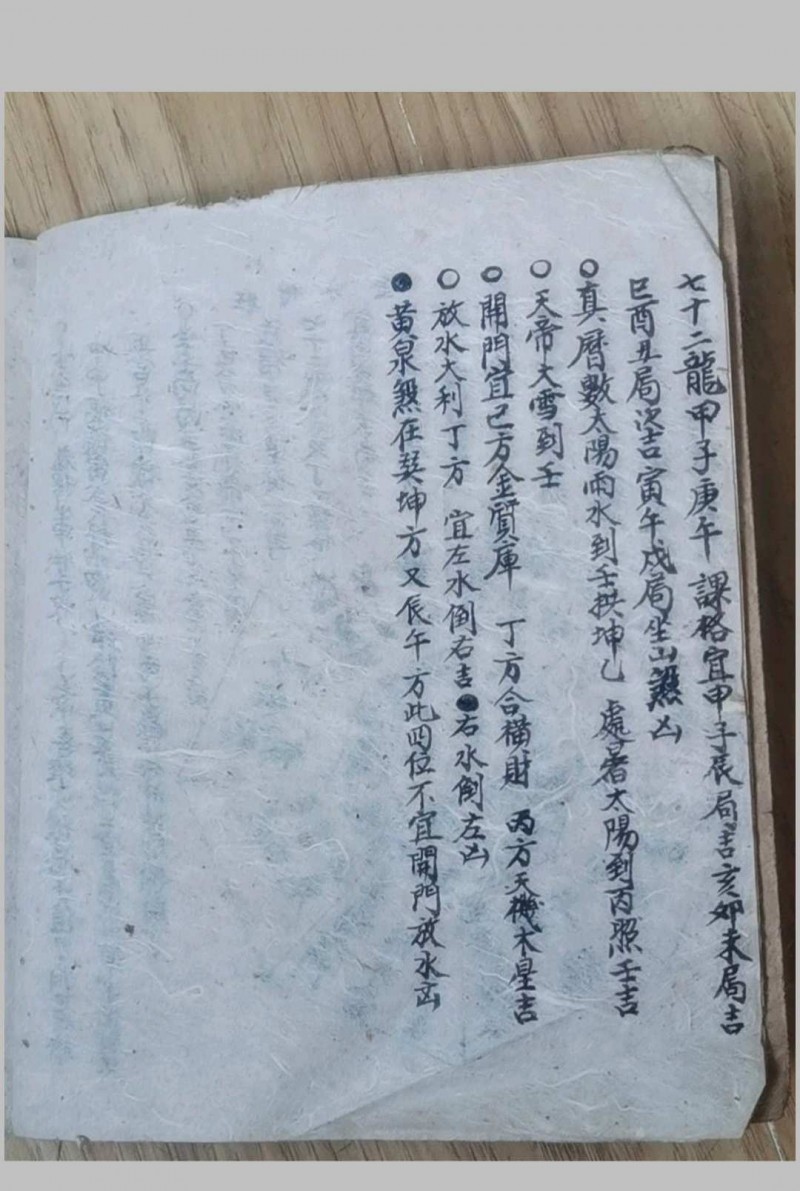 七十二龍甲子庚午 課格宜甲子辰局吉亥卯未局吉
巳酉丑局次吉寅午戌局坐山煞凶
○真曆數太陽雨水到壬拱坤乙 處暑太陽到丙照壬吉
○天帝大雪到壬
○開門宜巳方金質庫 丁方合橫財 丙方天機木星吉
○放水大利丁方 宜左水倒右吉●右水倒左凶
●黃泉煞在巽坤方又辰午方此四位不宜開門放水凶